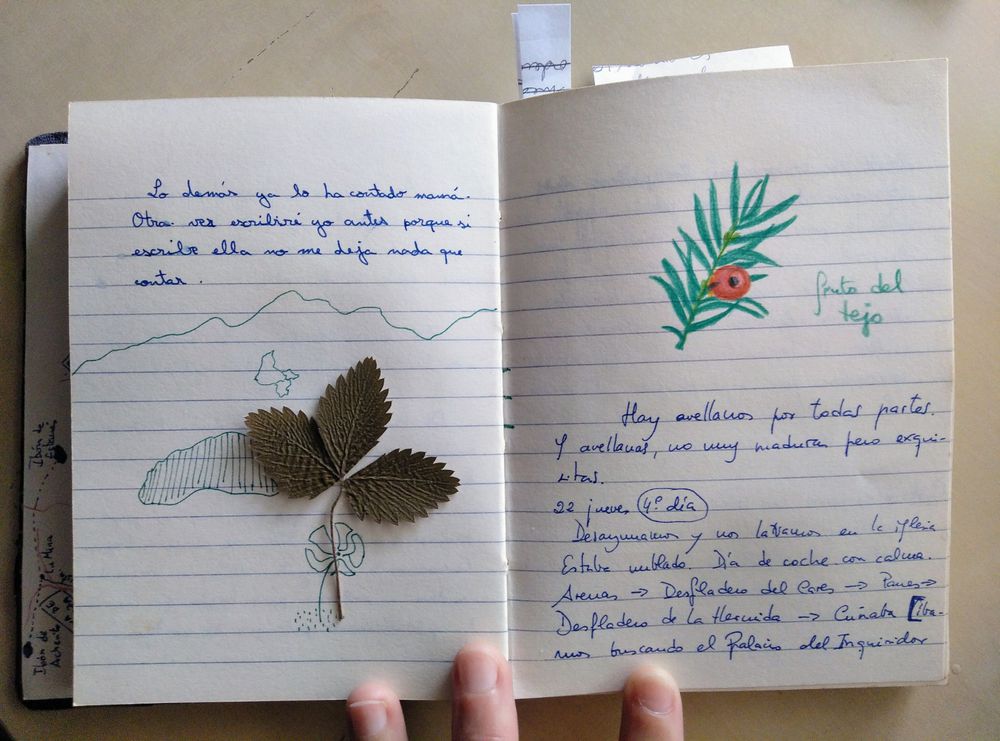 Lo demás ya lo ha contado mamá.
Otra vez escribiré yo antes porque si
escribe ella no me deja nada que
contar.
fruto del
tejo
Hay avellanos por todas partes.
Y avellanas, no muy maduras pero exqui-
sitas.
22 jueves 4º día
Desayunamos y nos lavamos en la iglesia
Estaba nublado. Día de coche con calma.
Arenas → Desfiladero del Cares → Panes →
Desfiladero de la Hermida → Cuñaba [íba-
mos buscando el Palacio del Inquisidor
Ibón de
Ibón de
La Mina